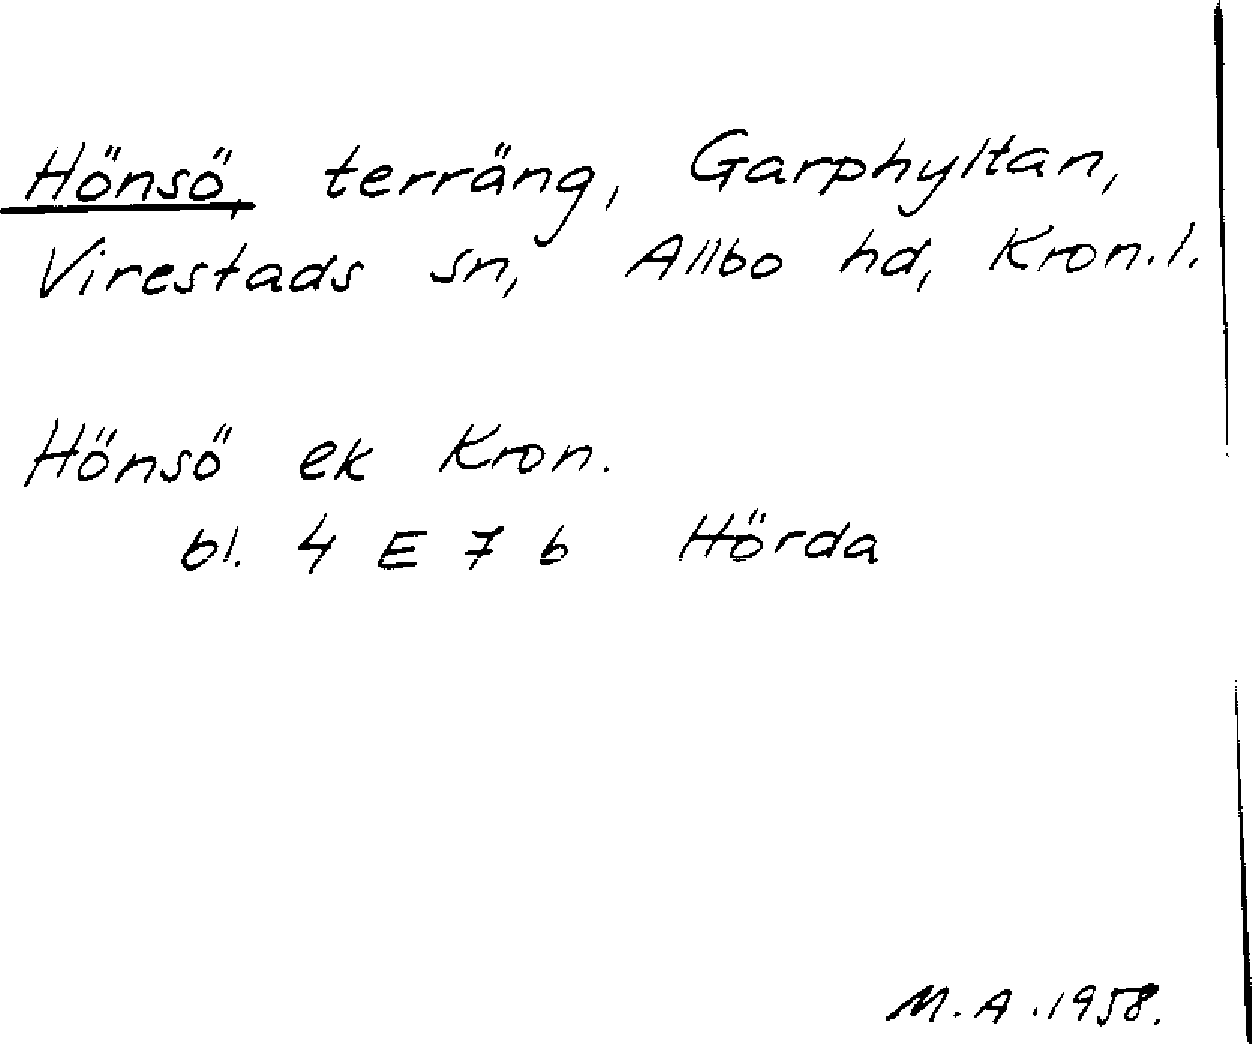 Hönsö, terräng, Garphyltan,
Virestads sn, Allbo hd, Kron.l.
Hönsö ek Kron.
bl. 4 E 7 b Hörda
M.A. 1958.